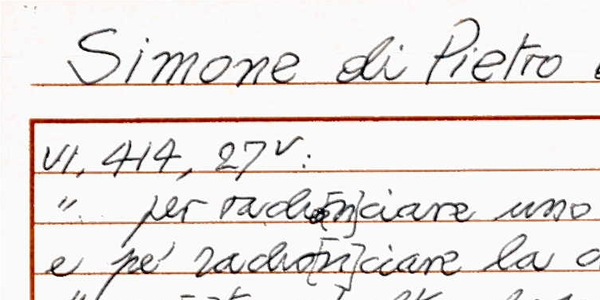 Simone di Pietro
VI, 414, 27v:
" per radio[n]ciare uno
e pe' radio[n]ciare la